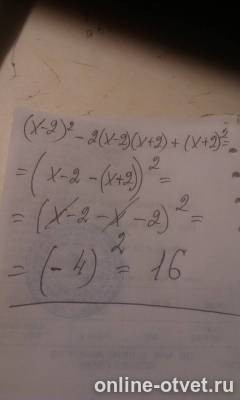 (x-2)² - 2(x-2)(x+2) + (x+2)² =
= (x-2 - (x+2))² =
= (x-2-x-2)² =
= (-4)² = 16
online-otvet.ru